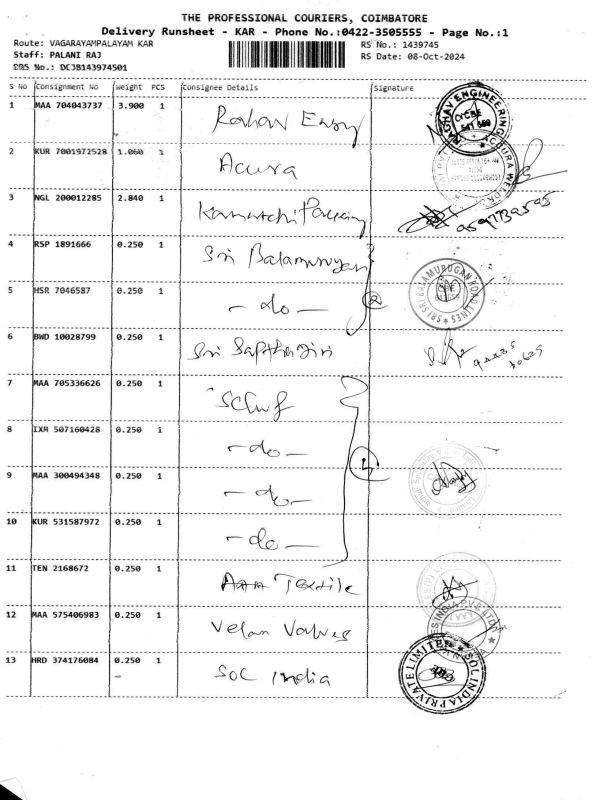 THE PROFESSIONAL COURIERS, COIMBATORE
Delivery Runsheet - KAR - Phone No.:0422-3505555 - Page No.:1
Route: VAGARAYAMPALAYAM KAR RS No.: 1439745
Staff: PALANI RAJ RS Date: 08-Oct-2024
DRS No.: DCJB143974501
S No Consignment No Weight PCS Consignee Details Signature
1 MAA 704043737 3.900 1
2 KUR 7001972528 1.060 1 Acura
3 NGL 200012285 2.840 1
4 RSP 1891666 0.250 1 Sri Balamurugan
5 HSR 7046587 0.250 1 - do -
6 BWD 10028799 0.250 1 Sri
7 MAA 705336626 0.250 1
8 IXM 507160428 0.250 1 - do -
9 MAA 300494348 0.250 1 - do -
10 KUR 531587972 0.250 1 - do -
11 TEN 2168672 0.250 1 Textile
12 MAA 575406983 0.250 1 Velan Valves
13 HRD 374176084 0.250 1 SOL India
RAGHAV ENGINEERING
SRI BALAMURUGAN ROAD LINES
SOL INDIA PRIVATE LIMITED